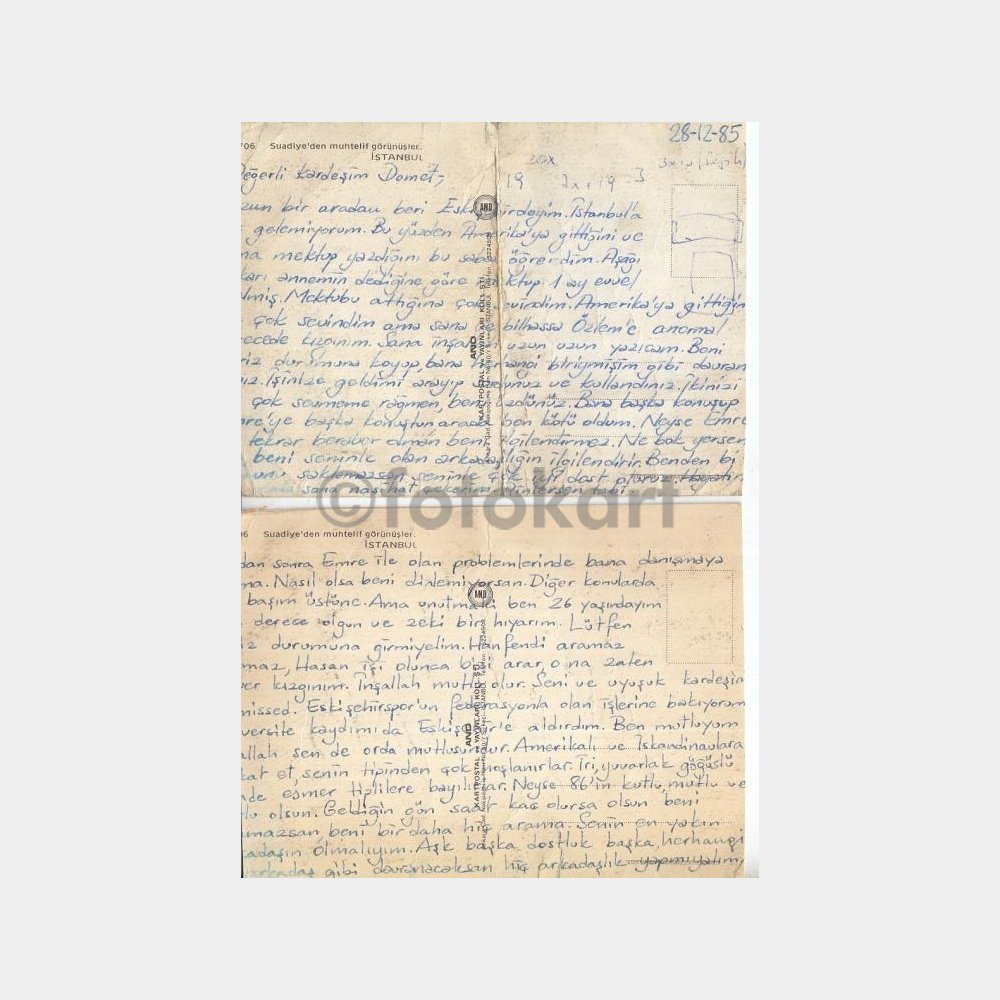 28-12-85
706 Suadiye'den muhtelif görünüşler.
İSTANBUL
20x
eğerli kardeşim Demet,
19 7x1 19 3
zun bir aradan beri Eski irdeyim. İstanbul'a
gelemiyorum. Bu yüzden Amerika'ya gittiğini ve
na mektup yazdığını bu sabah öğrendim. Aşağı
ları annemin dediğine göre mektup 1 ay evvel
lmiş. Mektubu attığına çok sevindim. Amerika'ya gittiğin
çok sevindim ama sana ve bilhassa Özlem'e anormal
ecede kızgınım. Sana inşallah uzun uzun yazıcam. Beni
riz durumuna koyup, bana herhangi biriymişim gibi davran
nız. İşinize geldimi arayıp sordunuz ve kullandınız. İkinizi
çok sevmeme rağmen, beni üzdünüz. Bana başka konuşup
mre'ye başka konuştun arada ben kötü oldum. Neyse Emre
tekrar beraber olman beni ilgilendirmez. Ne bok yersen
beni seninle olan arkadaşlığın ilgilendirir. Benden bi
unu saklamazsan seninle çok iyi dost oluruz. Hayatın
sana nasihat çekerim. Dinlersen tabi.
©fotokart
06 Suadiye'den muhtelif görünüşler.
İSTANBUL
dan sonra Emre ile olan problemlerinde bana danışmaya
ma. Nasıl olsa beni dinlemiyorsan. Diğer konularda
başım üstüne. Ama unutma ki ben 26 yaşındayım
derece olgun ve zeki bir hıyarım. Lütfen
iz durumuna girmiyelim. Hanfendi aramaz
maz, Hasan işi olunca bizi arar, o na zaten
er kızgınım. İnşallah mutlu olur. Seni ve uyuşuk kardeşin
missed. Eskişehirspor'un federasyonla olan işlerine bakıyorum
versite kaydımıda Eskişehir'e aldırdım. Ben mutluyum
allah sen de orda mutlusundur. Amerikalı ve İskandinavlara
kat et, senin tipinden çok hoşlanırlar. İri, yuvarlak göğüslü
nde esmer tiplilere bayılırlar. Neyse 86'in kutlu, mutlu ve
lu olsun. Geldiğin gün saat kaç olursa olsun beni
amazsan beni bir daha hiç arama. Senin en yakın
kadaşın olmalıyım. Aşk başka, dostluk başka, herhangi
arkadaş gibi davranacaksan hiç arkadaşlık yapmıyalım,
AND
KARTPOSTAL ve YAYINLARI KOLL. ŞTİ.
AND
KARTPOSTAL ve YAYINLARI KOLL. ŞTİ.